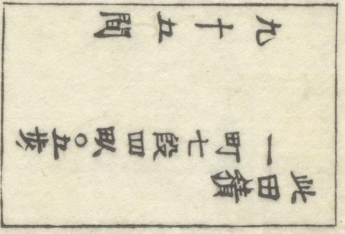 此田積
一町七段四畝〇五歩
九十五間